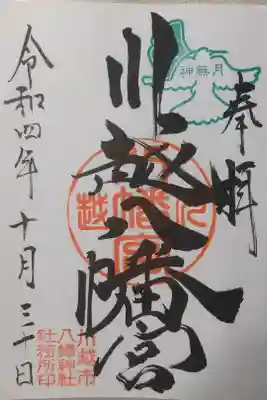 奉拝
神無月
川越八幡宮
令和四年十月三十日
川越市
八幡神社
社務所印